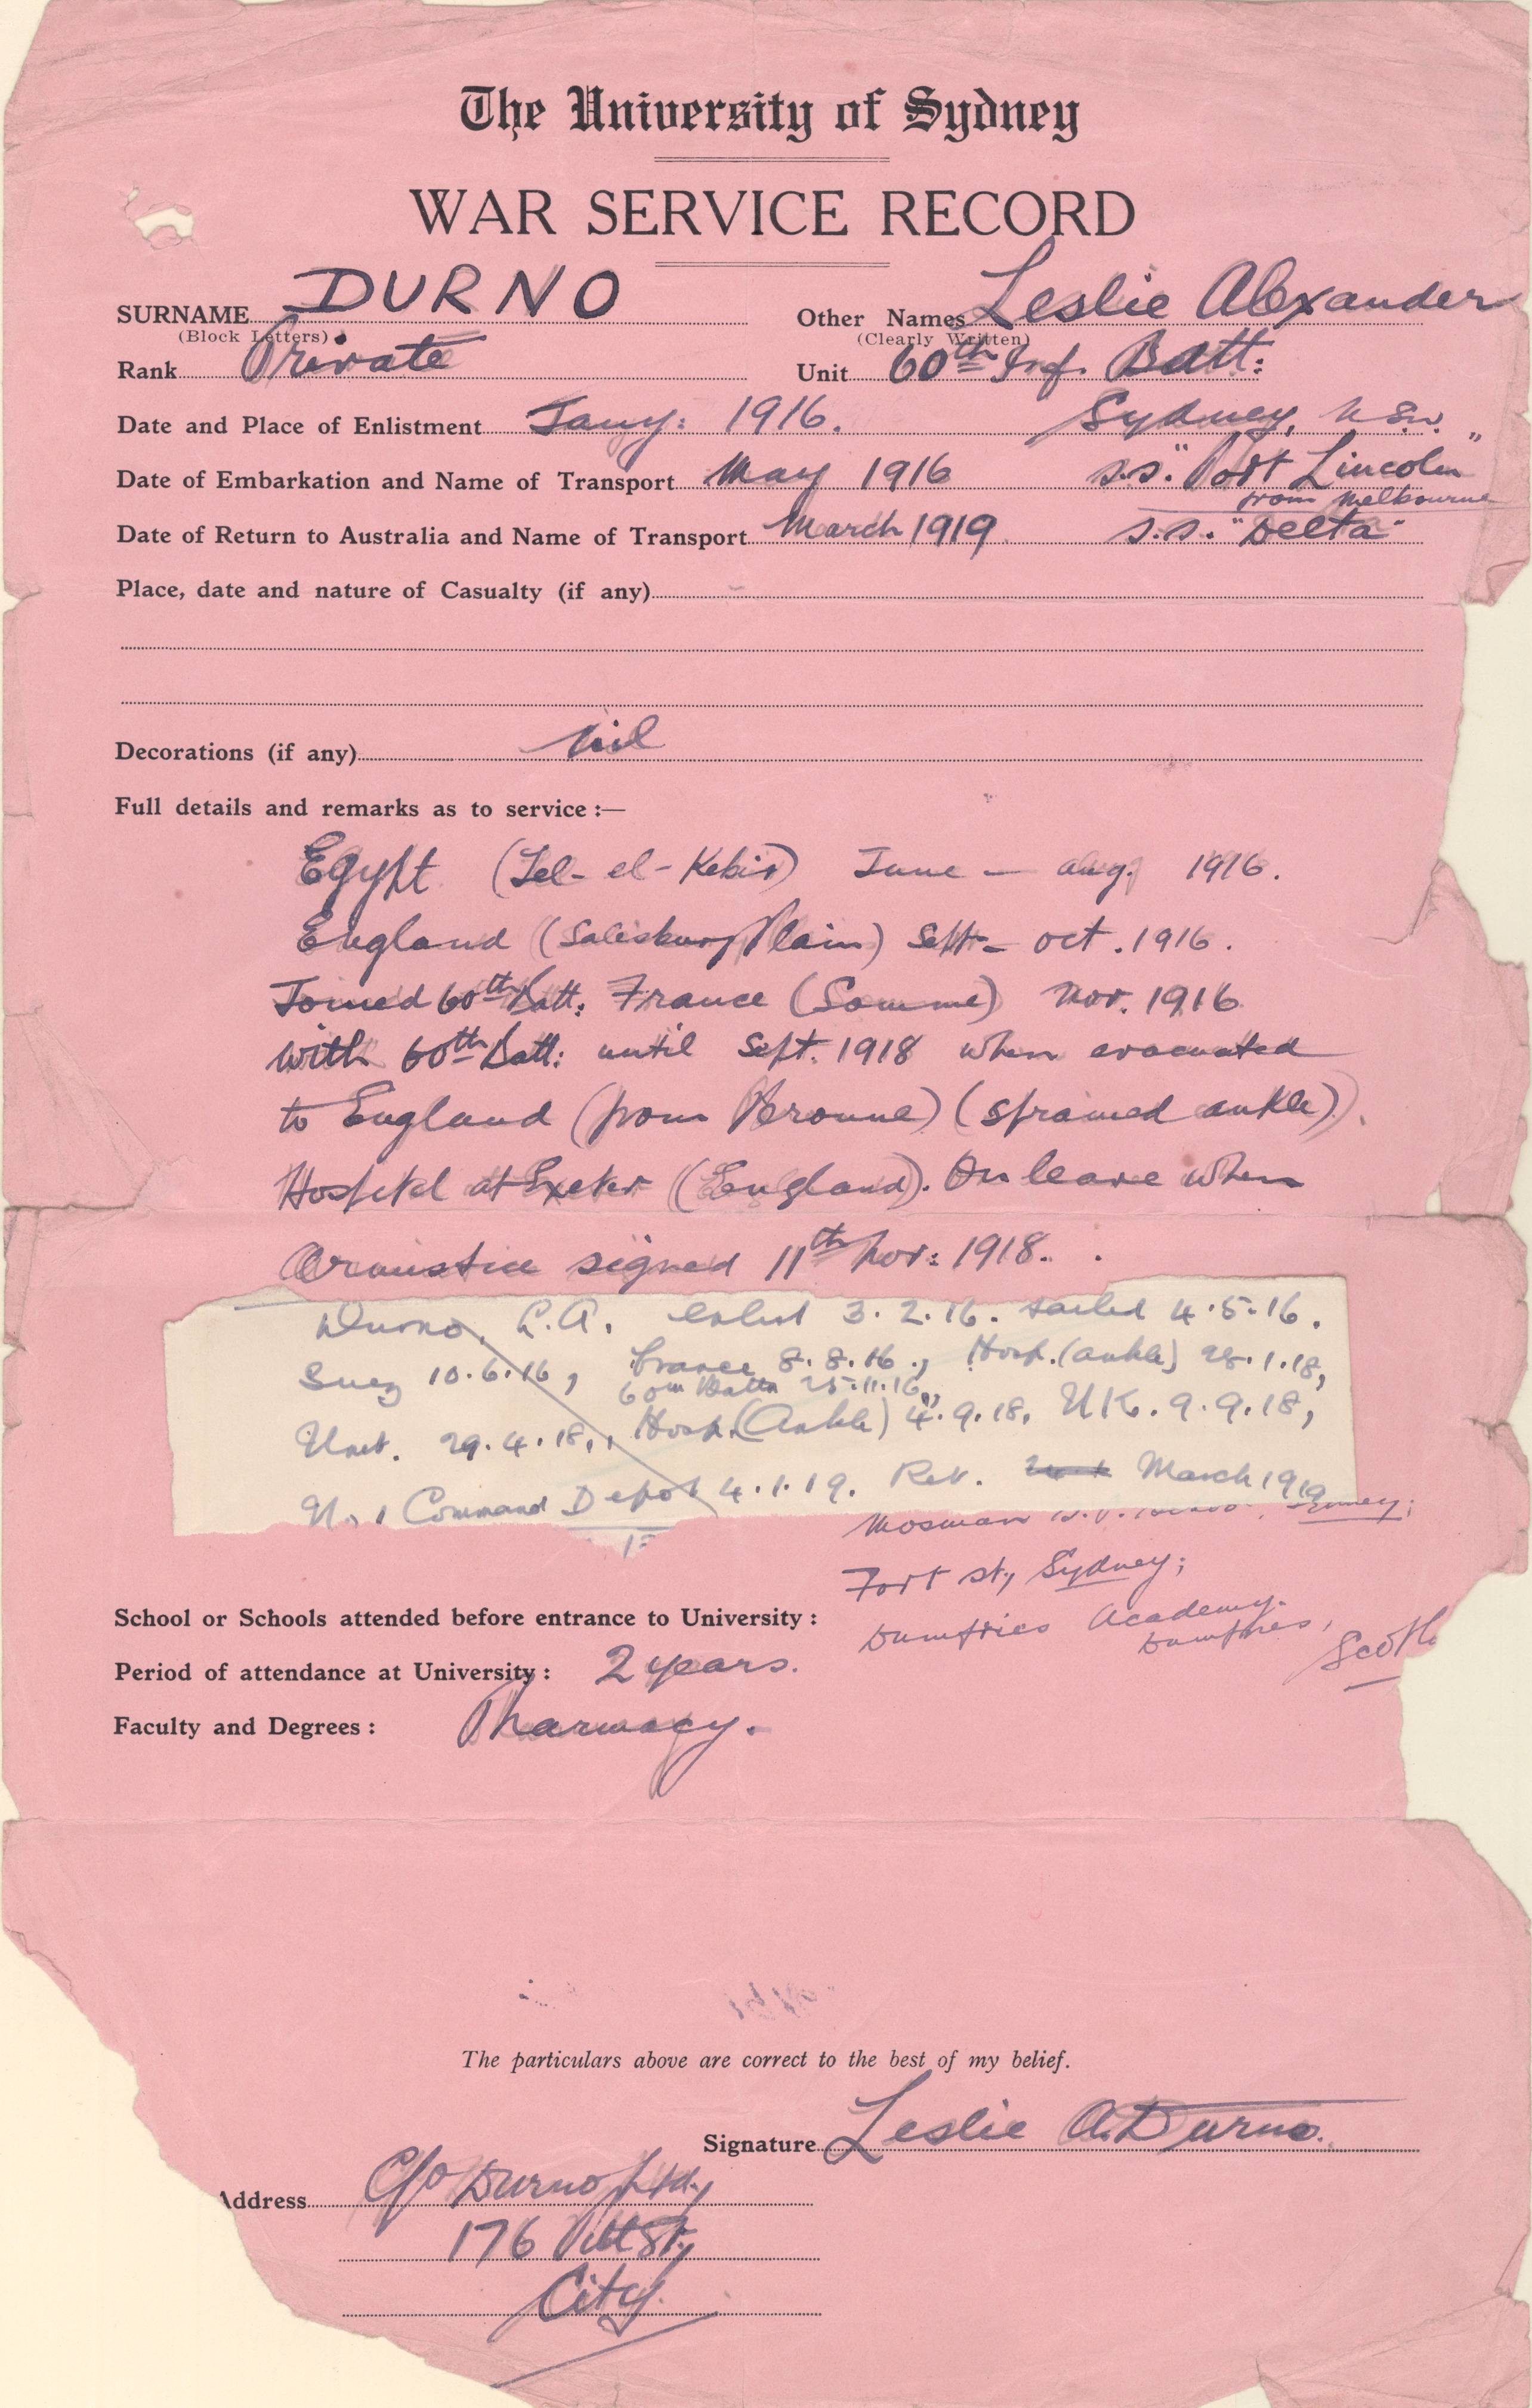 The University of Sydney
WAR SERVICE RECORD
SURNAME DURNO Other Names Leslie Alexander
(Block Letters) (Clearly Written)
Rank Private Unit 60th Inf. Batt:
Date and Place of Enlistment Jany: 1916. Sydney, N.S.W.
Date of Embarkation and Name of Transport May 1916 s.s. "Port Lincoln"
from Melbourne
Date of Return to Australia and Name of Transport March 1919 s.s. "Delta"
Place, date and nature of Casualty (if any)
Decorations (if any) nil
Full details and remarks as to service :—
Egypt (Tel-el-Kebir) June — Aug. 1916.
England (Salisbury Plain) Sept - Oct. 1916.
Joined 60th Batt: France (Somme) Nov. 1916
with 60th Batt: until Sept. 1918 when evacuated
to England (from Peronne) (sprained ankle).
Hospital at Exeter (England). On leave when
Armistice signed 11th Nov: 1918.
Durno, L.A. enlist 3.2.16. sailed 4.5.16.
Suez 10.6.16, France 8.8.16., Hosp. (ankle) 28.1.18,
60th Battn 25.11.16,
Unit. 29.4.18,, Hosp. (Ankle) 4.9.18, UK. 9.9.18,
No 1 Command Depot 4.1.19. Ret. March 1919
Mosman Sydney;
Fort St, Sydney;
School or Schools attended before entrance to University :
Dumfries Academy.
Dumfries,
Scotl
Period of attendance at University : 2 years.
Faculty and Degrees : Pharmacy.
The particulars above are correct to the best of my belief.
Signature Leslie A. Durno.
Address C/o Durno Ltd,
176 Pitt St,
City.